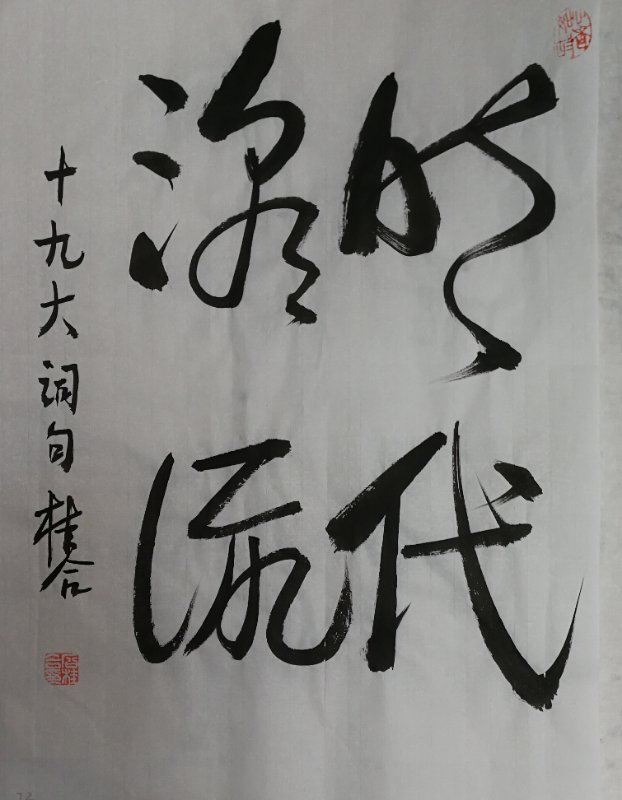 时代
潮流
十九大词句 桂合